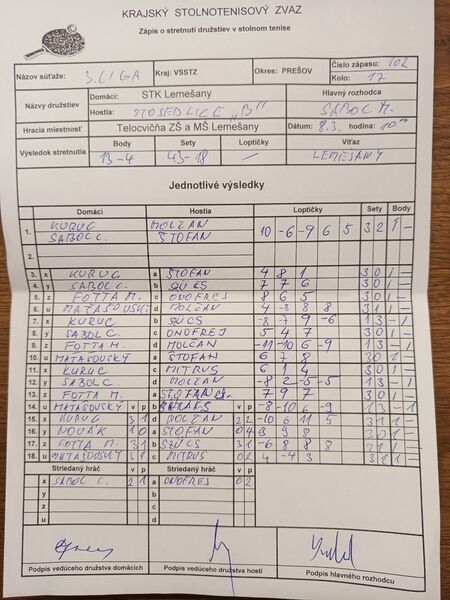 KRAJSKÝ STOLNOTENISOVÝ ZVÄZ
Zápis o stretnutí družstiev v stolnom tenise
Názov súťaže: 3. LIGA Kraj: VSSTZ Okres: PREŠOV Číslo zápasu: 102
Kolo: 17
Názvy družstiev Domáci: STK Lemešany Hlavný rozhodca
Hostia: "B" SABOL M.
Hracia miestnosť Telocvičňa ZŠ a MŠ Lemešany Dátum: 8.3. hodina: 10
Výsledok stretnutia Body Sety Loptičky Víťaz
13-4 43-18 — LEMEŠANY
Jednotlivé výsledky
Domáci Hostia Loptičky Sety Body
1. KURUC MOLČAN 10 -6 -9 6 5 3 2 1 -
SABOL C. ŠTOFAN
2.
3. x KURUC a ŠTOFAN 4 8 1 3 0 1 -
4. y SABOL C. b 7 7 6 3 0 1 -
5. z FOTTA M. c ONDREJ 8 6 5 3 0 1 -
6. u MATAŠOVSKÝ d MOLČAN 3 1 1 -
7. x KURUC b 1 3 - 1
8. y SABOL C. c ONDREJ 5 4 7 3 0 1 -
9. z FOTTA M. d MOLČAN -11 -10 6 -9 1 3 - 1
10. u MATAŠOVSKÝ a ŠTOFAN 6 7 8 3 0 1 -
11. x KURUC c MITRUS 6 1 4 3 0 1 -
12. y SABOL C. d MOLČAN -8 2 -5 -5 1 3 - 1
13. z FOTTA M. a ŠTOFAN 7 9 7 3 0 1 -
14. u MATAŠOVSKÝ v p b v p -8 -10 6 -9 1 3 - 1
15. x KURUC 3 1 d MOLČAN 2 2 -10 6 11 5 3 1 1 -
16. y NOVÁK 1 0 a ŠTOFAN 0 4
17. z FOTTA M. 3 1 b 0 3 -6 8 8 8 3 1 1 -
18. u MATAŠOVSKÝ c MITRUS 0 2 3 1 1 -
Striedaný hráč v p Striedaný hráč v p
x SABOL C. 2 1 a ONDREJ 0 2
y b
z c
u d
Podpis vedúceho družstva domácich Podpis vedúceho družstva hostí Podpis hlavného rozhodcu